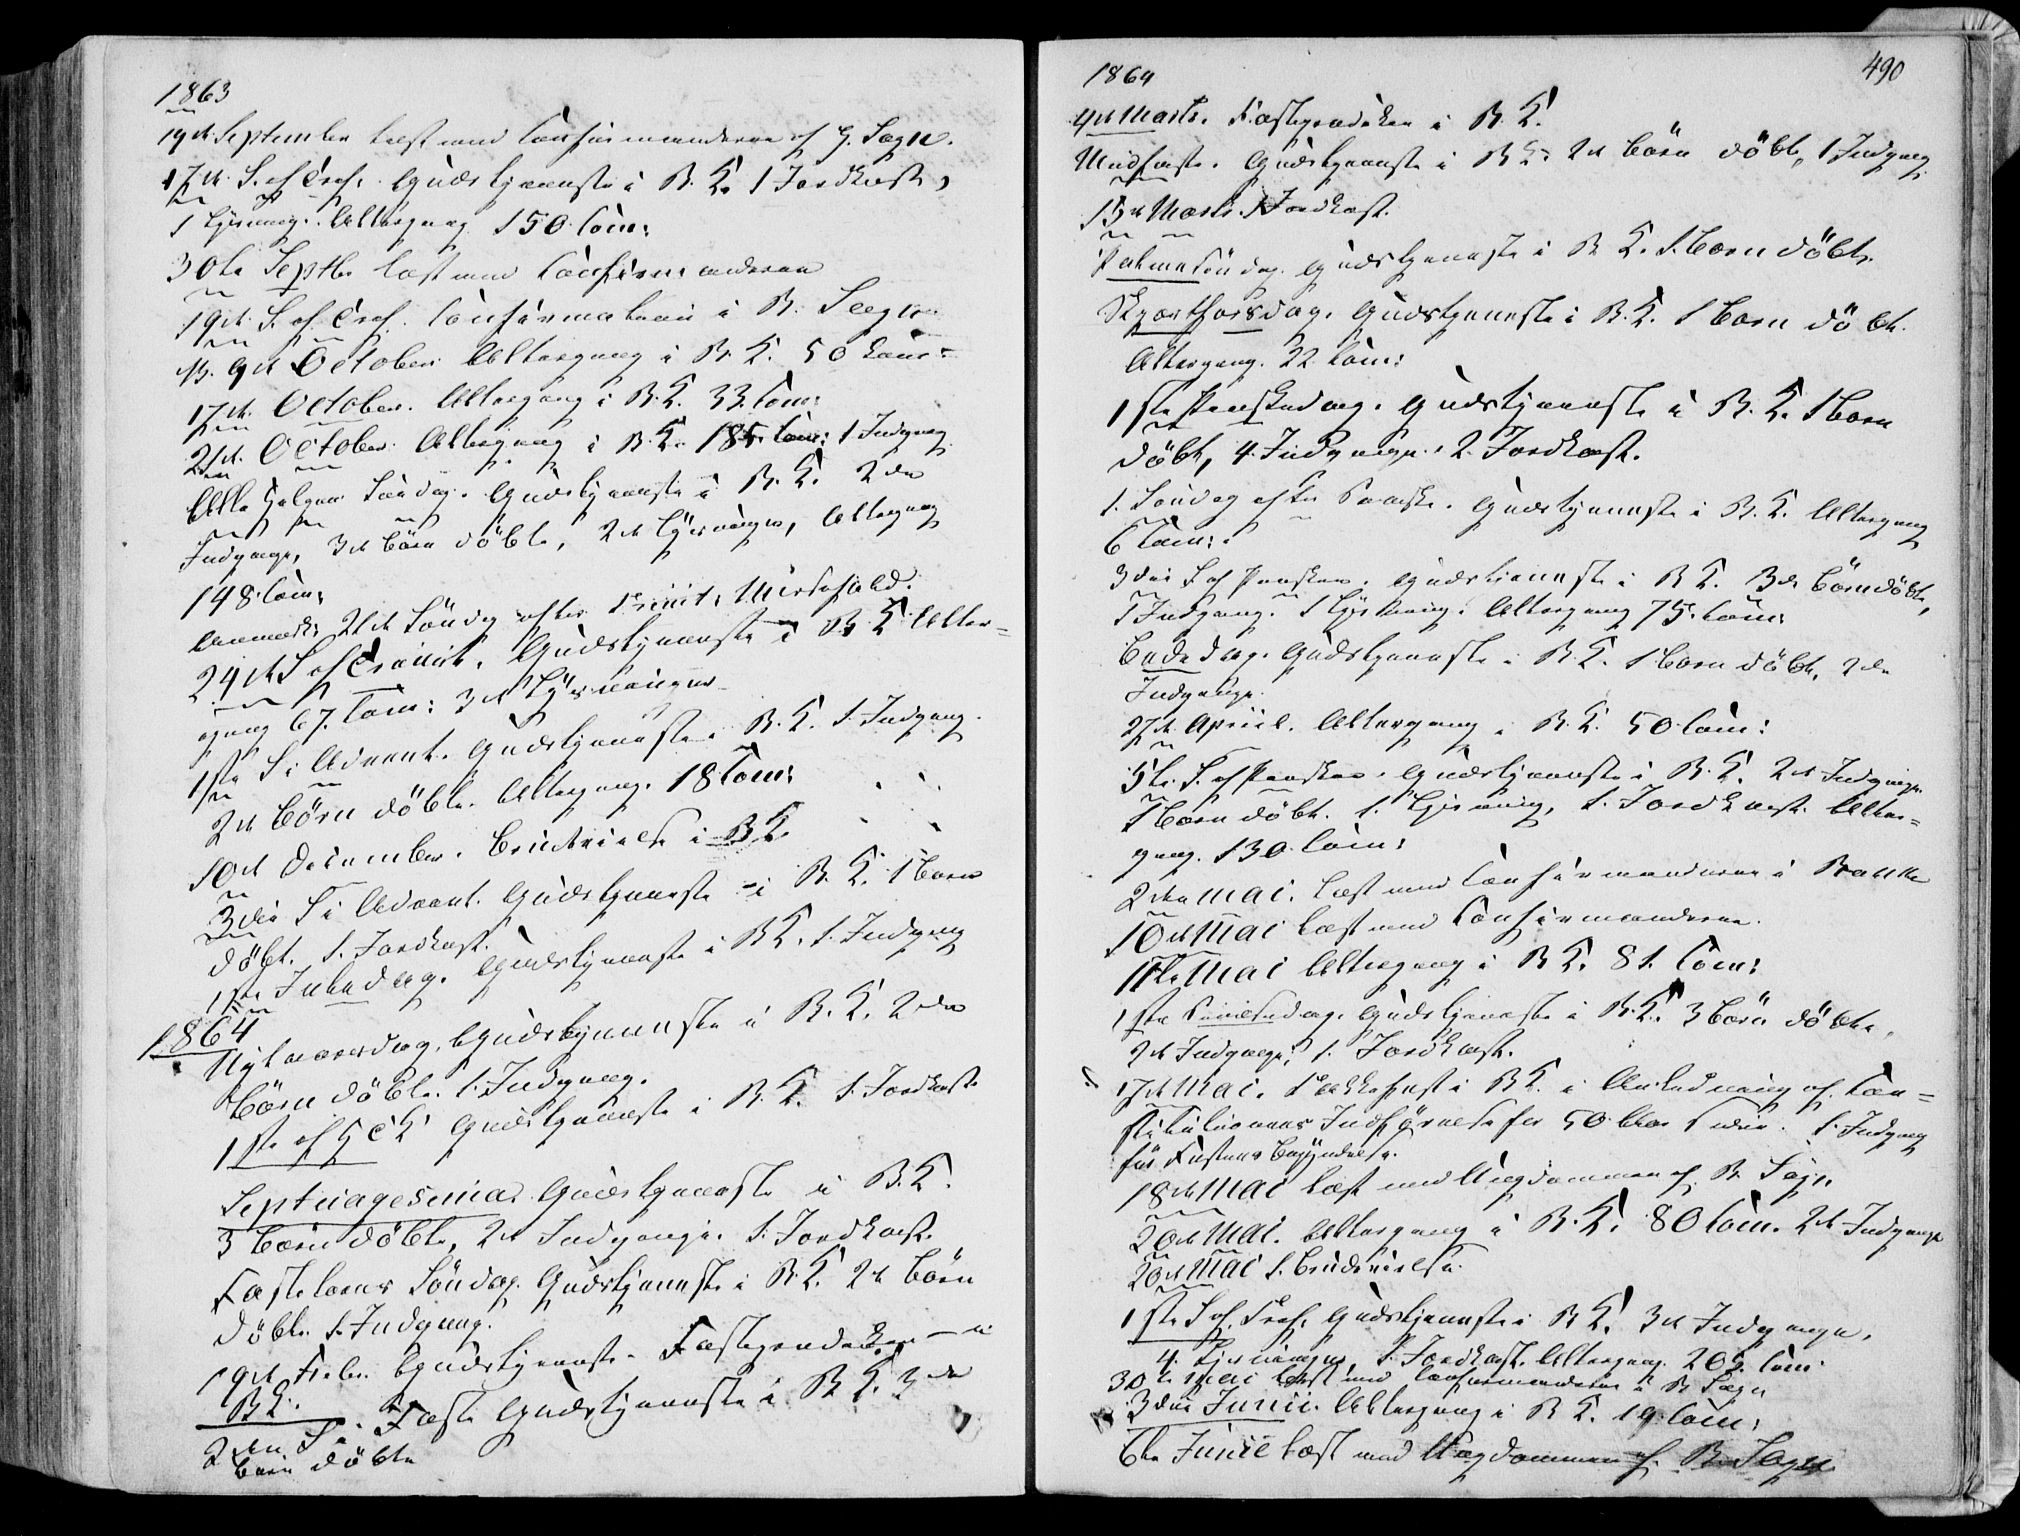 1863
19de September læst med Confirmanderne af H. Sogn.
17de S. ef Tref. Gudstjeneste i B. K. 1 Jordkast,
1 Lysning. Altergang 150 Com:
30te Septbr læst med Confirmanderne
19de S. ef Tref. Confirmation i B. Sogn
9de October Altergang i B. K. 50 Com:
17de October. Altergang i B. K. 33 Com:
21de October. Altergang i B. K. 185 Com: 1 Indgang
Alle Helgens Søndag. Gudstjeneste i B. K. 2de
Indgange, 3de Börn döbte, 2de Lysninger, Altergang
148 Com:
Anmærk: 21de Söndag efter Trinit: Messefald.
24de S ef Trinit. Gudstjeneste i B K Alter=
gang 67 Com: 3de Lysninger
1ste S i Advent. Gudstjeneste i B. K. 1. Indgang.
2de Börn döbte. Altergang. 18 Com:
10de December. Brudevielse i BK
3die S i Advent. Gudstjeneste i B. K. 1 Barn
döbt. 1. Jordkast.
1ste Juledag. Gudstjeneste i BK. 1. Indgang
1864
Nytaarsdag. Gudstjeneste i B. K. 2de
Börn döbte. 1. Indgang.
1ste ef H 3 K Gudstjeneste i B. K. 1. Jordkast
Septuagesima. Gudstjeneste i B. K.
3 Börn döbte, 2de Indgange. 1. Jordkast.
Fastelavns Söndag. Gudstjeneste i B. K. 2de Börn
döbte. 1. Indgang.
19de Febr. Gudstjeneste. Fasteprædiken i
BK.
2den S. i Faste Gudstjeneste i B K. 3de
Börn döbte
1864
490
4de Marts. Fasteprædiken i B. K.
Midfaste. Gudstjeneste i B K. 2de Börn döbte, 1 Indgang.
15de Marts. 1 Jordkast.
Palmesöndag. Gudstjeneste i B K. 1. Barn döbt.
Skjærthorsdag. Gudstjeneste i B. K. 1 Barn döbt.
Altergang. 22. Com:
1ste Paaskedag. Gudstjeneste i B. K. 1 Barn
döbt, 4. Indgange. 2. Jordkast.
1. Söndag efter Paaske. Gudstjeneste i B. K. Altergang
6 Com:
3die S ef Paaske. Gudstjeneste i B K. 3de Börn döbte,
1 Indgang. 1 Lysning. Altergang 75 Com:
Bededag. Gudstjeneste i B. K. 1 Barn döbt, 2de
Indgange.
27de April. Altergang i B. K. 50 Com:
5te S. ef Paaske. Gudstjeneste i B. K. 2de Indgange
1 Barn döbt. 1. Lysning, 1. Jordkast. Alter=
gang. 130. Com:
2den Mai. læst med Confirmanderne i
10de Mai læst med Confirmanderne.
11te Mai Altergang i B K. 81. Com:
1ste Pintsedag. Gudstjeneste i B. K. 3 Börn döbte,
2de Indgange, 1. Jordkast.
17de Mai. Takkefest i B K. i Anledning af Con=
stitutionens Indförelse for 50 Aar siden. 1. Indgang
för Festens Begyndelse.
18de Mai læst med Ungdommen af B Sogn
20de Mai. Altergang i B. K. 80 Com. 2de Indgange
20de Mai 1. Brudevielse.
1ste S. ef. Tref. Gudstjeneste i B K. 3de Indgange,
4. Lysninger, 1. Jordkast. Altergang. 205 Com.
30te Mai læst med Confirmanderne i B Sogn
3die Junii. Altergang i B K. 19 Com:
6te Junii læst med Ungdommen af B Sogn